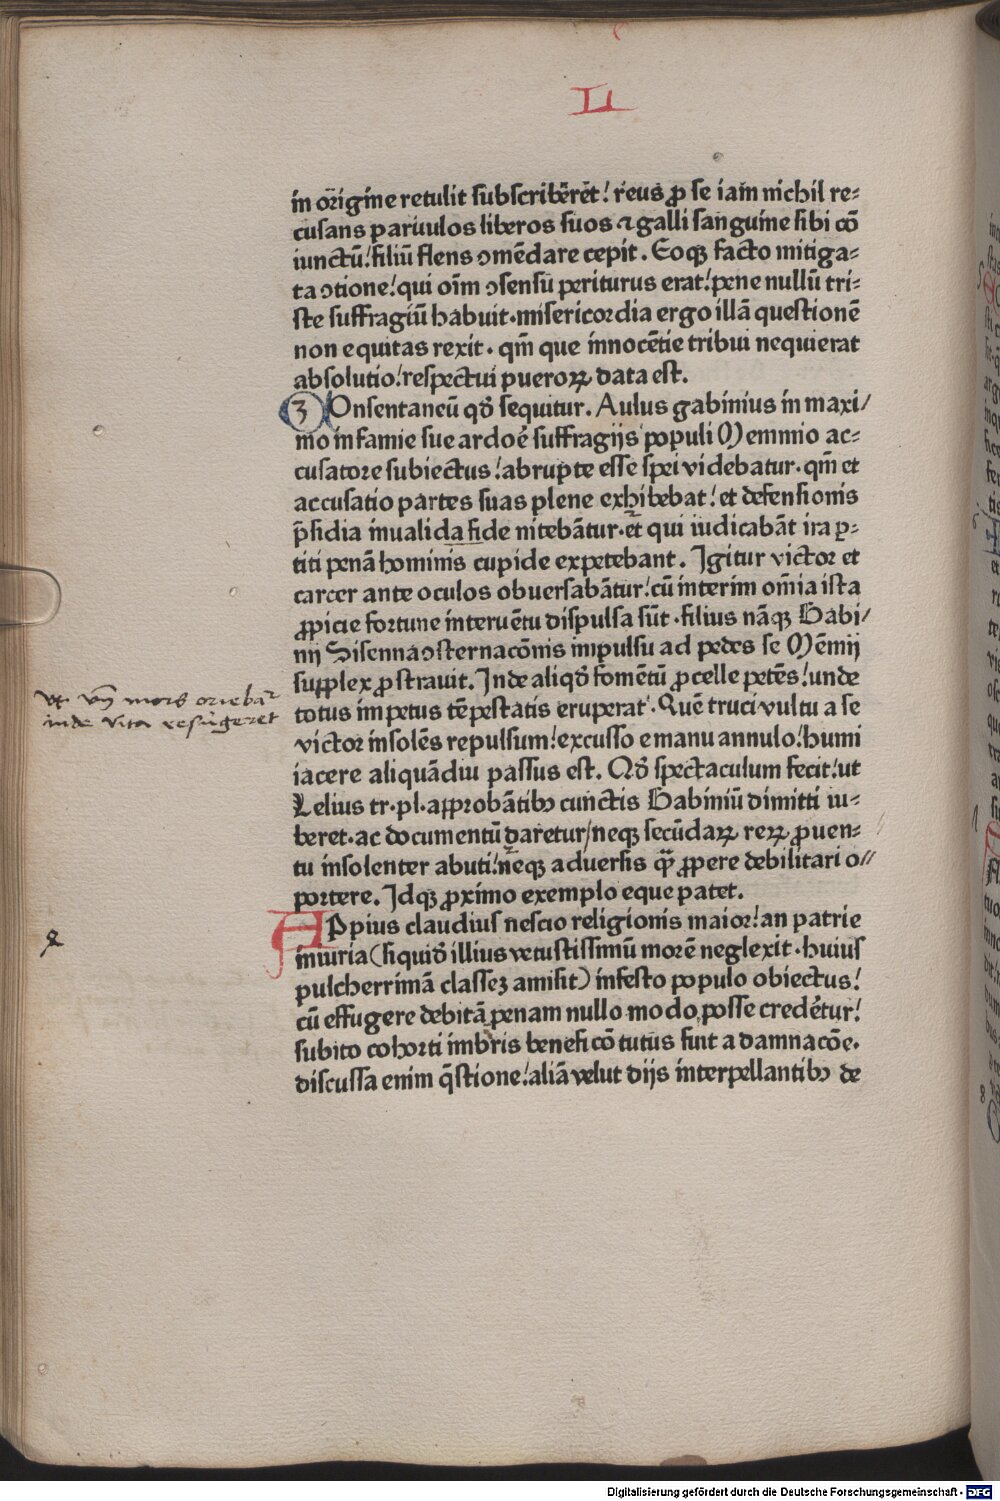 LI
in origine retulit subscriberēt! reus ꝓ se iam nichil re⸗
cusans paruulos liberos suos ⁊ galli sanguine sibi cō
iunctū! filiū flens ↄmēdare cepit. Eoqꝫ facto mitiga⸗
ta ↄtione! qui oīm ↄsensu periturus erat! pene nullū tri⸗
ste suffragiū habuit. misericordia ergo illā questionē
non equitas rexit. qm̄ que innocētie tribui nequierat
absolutio! respectui pueroꝝ data est.
3 Onsentaneū qđ sequitur. Aulus gabinius in maxi/
mo infamie sue ardoē suffragijs populi Memmio ac⸗
cusatore subiectus! abrupte esse spei videbatur. qm̄ et
accusatio partes suas plene exhibebat! et defensionis
p̄sidia inualida fide nitebātur. et qui iudicabāt ira ꝑ⸗
titi penā hominis cupide expetebant. Igitur victor et
carcer ante oculos obuersabātur! cū interim om̄ia ista
ꝓpicie fortune interuētu dispulsa sūt. filius nāqꝫ Gabi/
nij Sisenna ↄsternacōnis impulsu ad pedes se Mēmij
supplex ꝓstrauit. Inde aliqđ fomētū ꝓcelle petēs! unde
totus impetus tēpestatis eruperat. Quē truci vultu a se
victor insolēs repulsum! excusso e manu annulo! humi
iacere aliquādiu passus est. Qđ spectaculum fecit! ut
Lelius tr. pl. approbātibꝫ cunctis Gabiniū dimitti iu⸗
beret. ac documentū daretur/ neqꝫ secūdaꝝ reꝝ ꝓuen⸗
tu insolenter abuti! neqꝫ aduersis qͣ̄ ꝓpere debilitari o//
portere. Idqꝫ ꝓximo exemplo eque patet.
APpius claudius nescio religionis maior! an patrie
iniuria (siquiđ illius vetustissimū morē neglexit. huius
pulcherrimā classeꝫ amisit) infesto populo obiectus!
cū effugere debitā penam nullo modo posse credētur!
subito cohorti imbris beneficō tutus fuit a damnacōe.
discussa enim q̄stione! aliā velut dijs interpellantibꝫ de
vt vn̄ mors orieba͛
inde vita resurgeret